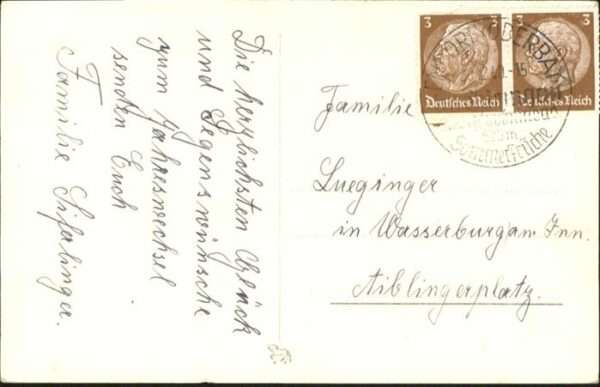 Die herzlichsten Glück
und Segenswünsche
zum Jahreswechsel
senden Euch
Familie
3
3
Deutsches Reich
Deutsches Reich
Sommerfrische
Familie
Lueginger
in Wasserburg am Inn.
Aiblingerplatz.